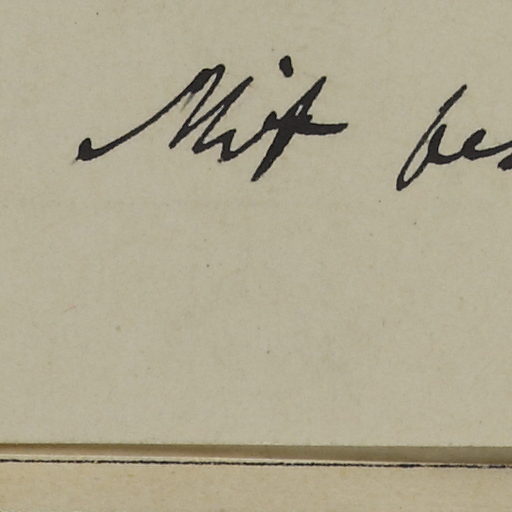 Mit bes